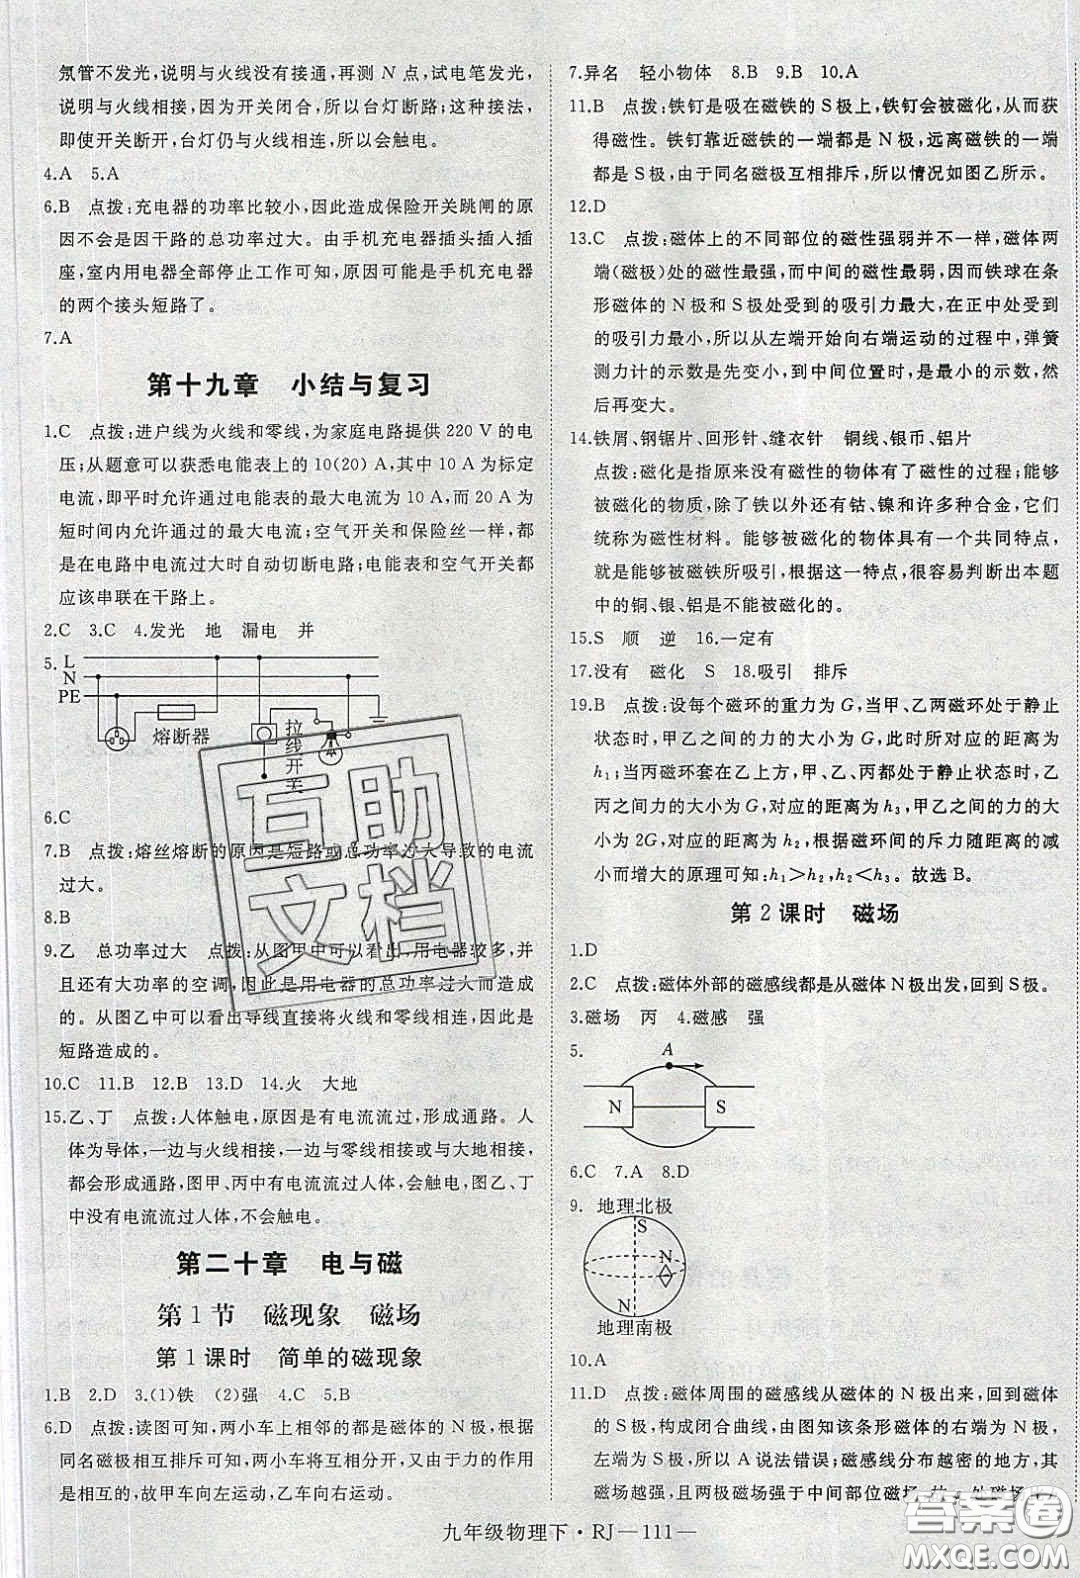 氖管不发光,说明与火线没有接通,再测 N 点,试电笔发光,
说明与火线相接,因为开关闭合,所以台灯断路;这种接法,
即使开关断开,台灯仍与火线相连,所以会触电。
4.A 5.A
6.B 点拨:充电器的功率比较小,因此造成保险开关跳闸的原
因不会是因干路的总功率过大。由手机充电器插头插入插
座,室内用电器全部停止工作可知,原因可能是手机充电器
的两个接头短路了。
7.A
第十九章 小结与复习
1.C 点拨:进户线为火线和零线,为家庭电路提供 220 V 的电
压;从题意可以获悉电能表上的 10(20) A,其中 10 A 为标定
电流,即平时允许通过电能表的最大电流为 10 A,而 20 A 为
短时间内允许通过的最大电流;空气开关和保险丝一样,都
是在电路中电流过大时自动切断电路;电能表和空气开关都
应该串联在干路上。
2.C 3.C 4.发光 地 漏电 并
5.
L
N
PE
熔断器
拉线开关
6.C
7.B 点拨:熔丝熔断的原因是短路或总功率过大导致的电流
过大。
8.B
9.乙 总功率过大 点拨:从图甲中可以看出,用电器较多,并
且还有大功率的空调,因此是用电器的总功率过大造成的。
从图乙中可以看出导线直接将火线和零线相连,因此是
短路造成的。
10.C 11.B 12.B 13.D 14.火 大地
15.乙、丁 点拨:人体触电,原因是有电流流过,形成通路。人
体为导体,一边与火线相接,一边与零线相接或与大地相接,
都会形成通路,图甲、丙中有电流流过人体,会触电,图乙、丁
中没有电流流过人体,不会触电。
第二十章 电与磁
第 1 节 磁现象 磁场
第 1 课时 简单的磁现象
1.B 2.D 3.(1)铁 (2)强 4.C 5.B
6.D 点拨:读图可知,两小车上相邻的都是磁体的 N 极,根据
同名磁极相互排斥可知,两小车将互相分开,由于力的作用
是相互的,故甲车向左运动,乙车向右运动。
7.异名 轻小物体 8.B 9.B 10.A
11.B 点拨:铁钉是吸在磁铁的 S 极上,铁钉会被磁化,从而获
得磁性。铁钉靠近磁铁的一端都是 N 极,远离磁铁的一端
都是 S 极,由于同名磁极互相排斥,所以情况如图乙所示。
12.D
13.C 点拨:磁体上的不同部位的磁性强弱并不一样,磁体两
端(磁极)处的磁性最强,而中间的磁性最弱,因而铁球在条
形磁体的 N 极和 S 极处受到的吸引力最大,在正中处受到
的吸引力最小,所以从左端开始向右端运动的过程中,弹簧
测力计的示数是先变小,到中间位置时,是最小的示数,然
后再变大。
14.铁屑、钢锯片、回形针、缝衣针 铜线、银币、铝片
点拨:磁化是指原来没有磁性的物体有了磁性的过程;能够
被磁化的物质,除了铁以外还有钴、镍和许多种合金,它们
统称为磁性材料。能够被磁化的物体具有一个共同特点,
就是能够被磁铁所吸引,根据这一特点,很容易判断出本题
中的铜、银、铝是不能被磁化的。
15.S 顺 逆 16.一定有
17.没有 磁化 S 18.吸引 排斥
19.B 点拨:设每个磁环的重力为 G,当甲、乙两磁环处于静止
状态时,甲乙之间的力的大小为 G,此时所对应的距离为
h₁;当丙磁环套在乙上方,甲、乙、丙都处于静止状态时,乙
丙之间的力的大小为 G,对应的距离为 h₃,甲乙之间的力的大
小为 2G,对应的距离为 h₂,根据磁环间的斥力随距离的减
小而增大的原理可知:h₁>h₂,h₂<h₃。故选 B。
第 2 课时 磁场
1.D
2.C 点拨:磁体外部的磁感线都是从磁体 N极出发,回到 S极。
3.磁场 丙 4.磁感 强
5.
A
N S
6.C 7.A 8.D
9. 地理北极
S
N
N
地理南极
10.A
11.D 点拨:磁体周围的磁感线从磁体的 N 极出来,回到磁体
的 S 极,构成闭合曲线,由图知该条形磁体的右端为 N 极,
左端为 S 极,所以 A 说法错误;磁感线分布越密的地方,其
磁场越强,且两极磁场强于中间部位磁场,故
九年级物理下·RJ—111—
互助
文档
答案圈
MXQE.COM